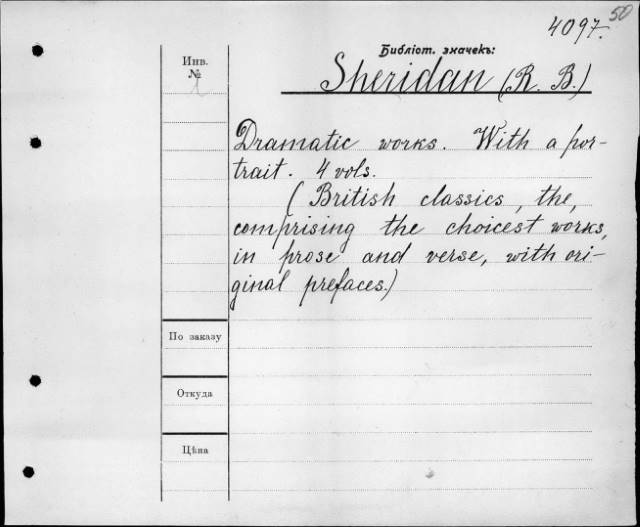 50
4097.
Библіот. значекъ:
Инв.
№
Sheridan (R. B.)
Dramatic works. With a por-
trait. 4 vols.
(British classics, the,
comprising the choicest works,
in prose and verse, with ori-
ginal prefaces.)
По заказу
Откуда
Цѣна